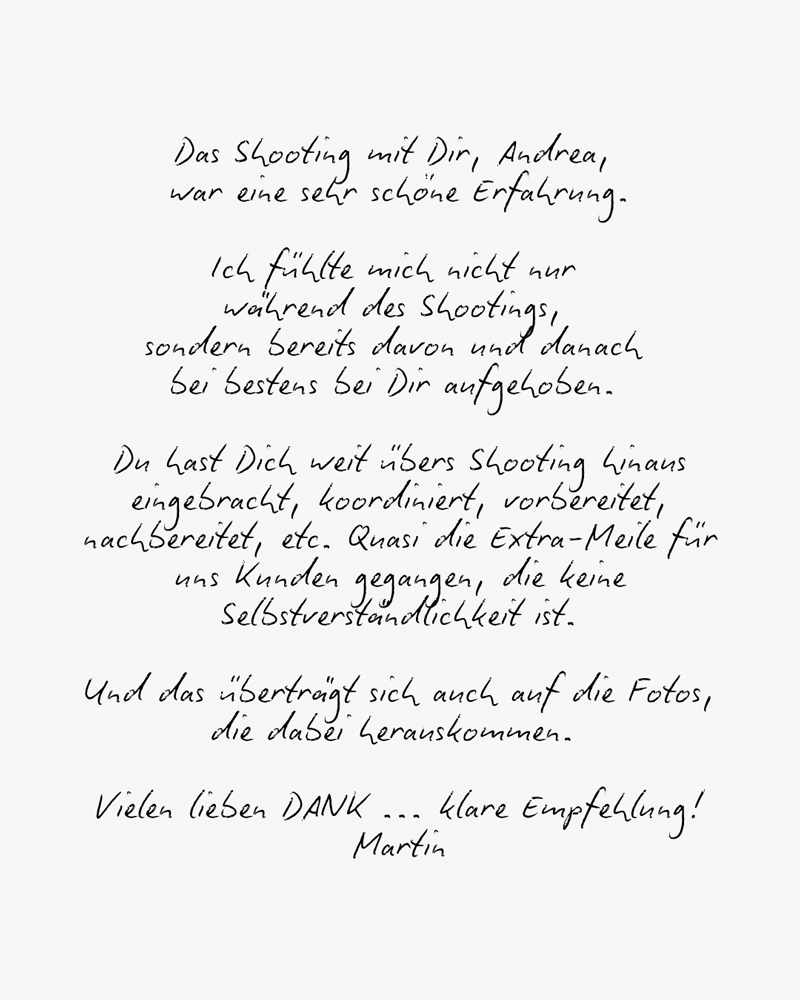 Das Shooting mit Dir, Andrea,
war eine sehr schöne Erfahrung.
Ich fühlte mich nicht nur
während des Shootings,
sondern bereits davon und danach
bei bestens bei Dir aufgehoben.
Du hast Dich weit übers Shooting hinaus
eingebracht, koordiniert, vorbereitet,
nachbereitet, etc. Quasi die Extra-Meile für
uns Kunden gegangen, die keine
Selbstverständlichkeit ist.
Und das überträgt sich auch auf die Fotos,
die dabei herauskommen.
Vielen lieben DANK ... klare Empfehlung!
Martin